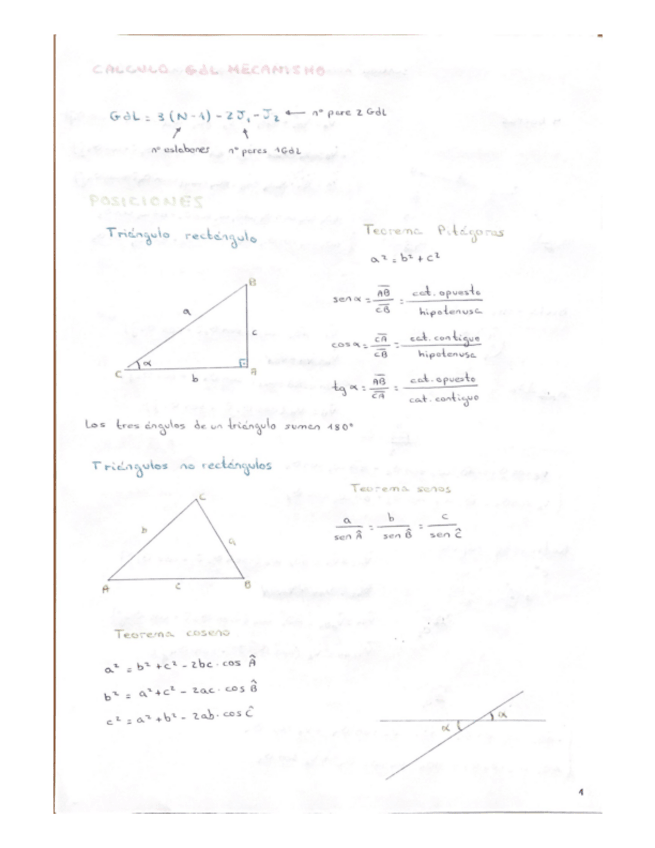 CALCULO GdL MECANISMO
GdL = 3 (N-1) - 2J₁ - J₂ ← nº pare 2 GdL
nº eslabones nº pares 1GdL
POSICIONES
Triángulo rectángulo
Teorema Pitágoras
a² = b² + c²
B
a
c
α
C
b
A
sen α = AB / CB = cat. opuesto / hipotenusa
cos α = CA / CB = cat. contiguo / hipotenusa
tg α = AB / CA = cat. opuesto / cat. contiguo
Los tres ángulos de un triángulo suman 180°
Triángulos no rectángulos
Teorema senos
a / sen Â = b / sen B̂ = c / sen Ĉ
C
b
a
A
c
B
Teorema coseno
a² = b² + c² - 2bc · cos Â
b² = a² + c² - 2ac · cos B̂
c² = a² + b² - 2ab · cos Ĉ
α
α
1